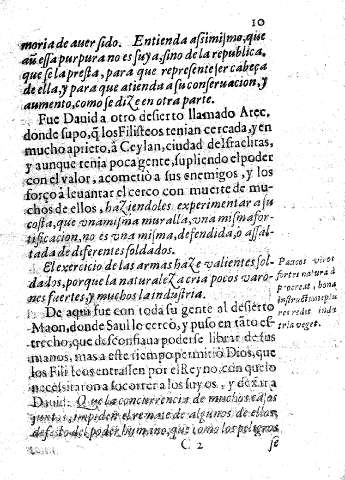 10
moria de auer sido. Entienda assimismo, que
aũ essa purpura no es suya, sino de la republica,
que se la presta, para que represente ser cabeça
de ella, y para que atienda a su conseruacion, y
aumento, como se dize en otra parte.
Fue Dauid a otro desierto llamado Arec,
donde supo, q̃ los Filisteos tenian cercada, y en
mucho aprieto, à Ceylan, ciudad de Israelitas,
y aunque tenia poca gente, supliendo el poder
con el valor, acometiò a sus enemigos, y los
forçò à leuantar el cerco con muerte de mu-
chos de ellos, haziendoles experimentar a su
costa, que vna misma muralla, vna misma for-
tificacion, no es vna misma, defendida, ò assal-
tada de diferentes soldados.
El exercicio de las armas haze valientes sol-
dados, porque la naturaleza cria pocos varo-
nes fuertes, y muchos la industria.
Paucos viros
fortes natura
procreat, bona
institutione plu
res reddit indus
tria veget.
De aqui fue con toda su gente al desierto
Maon, donde Saul lo cercò, y puso en tãto es-
trecho, que desconfiaua poderse librar de sus
manos, mas a este tiempo permitiò Dios, que
los Filisteos entrassen por el Reyno, con que lo
necessitaron a socorrer a los suyos, y dexar a
Dauid. Que la concurrencia de muchos casos
juntos, impiden el remate de algunos de ellos,
defecto del poder humano, que como los peligros
C 2
se